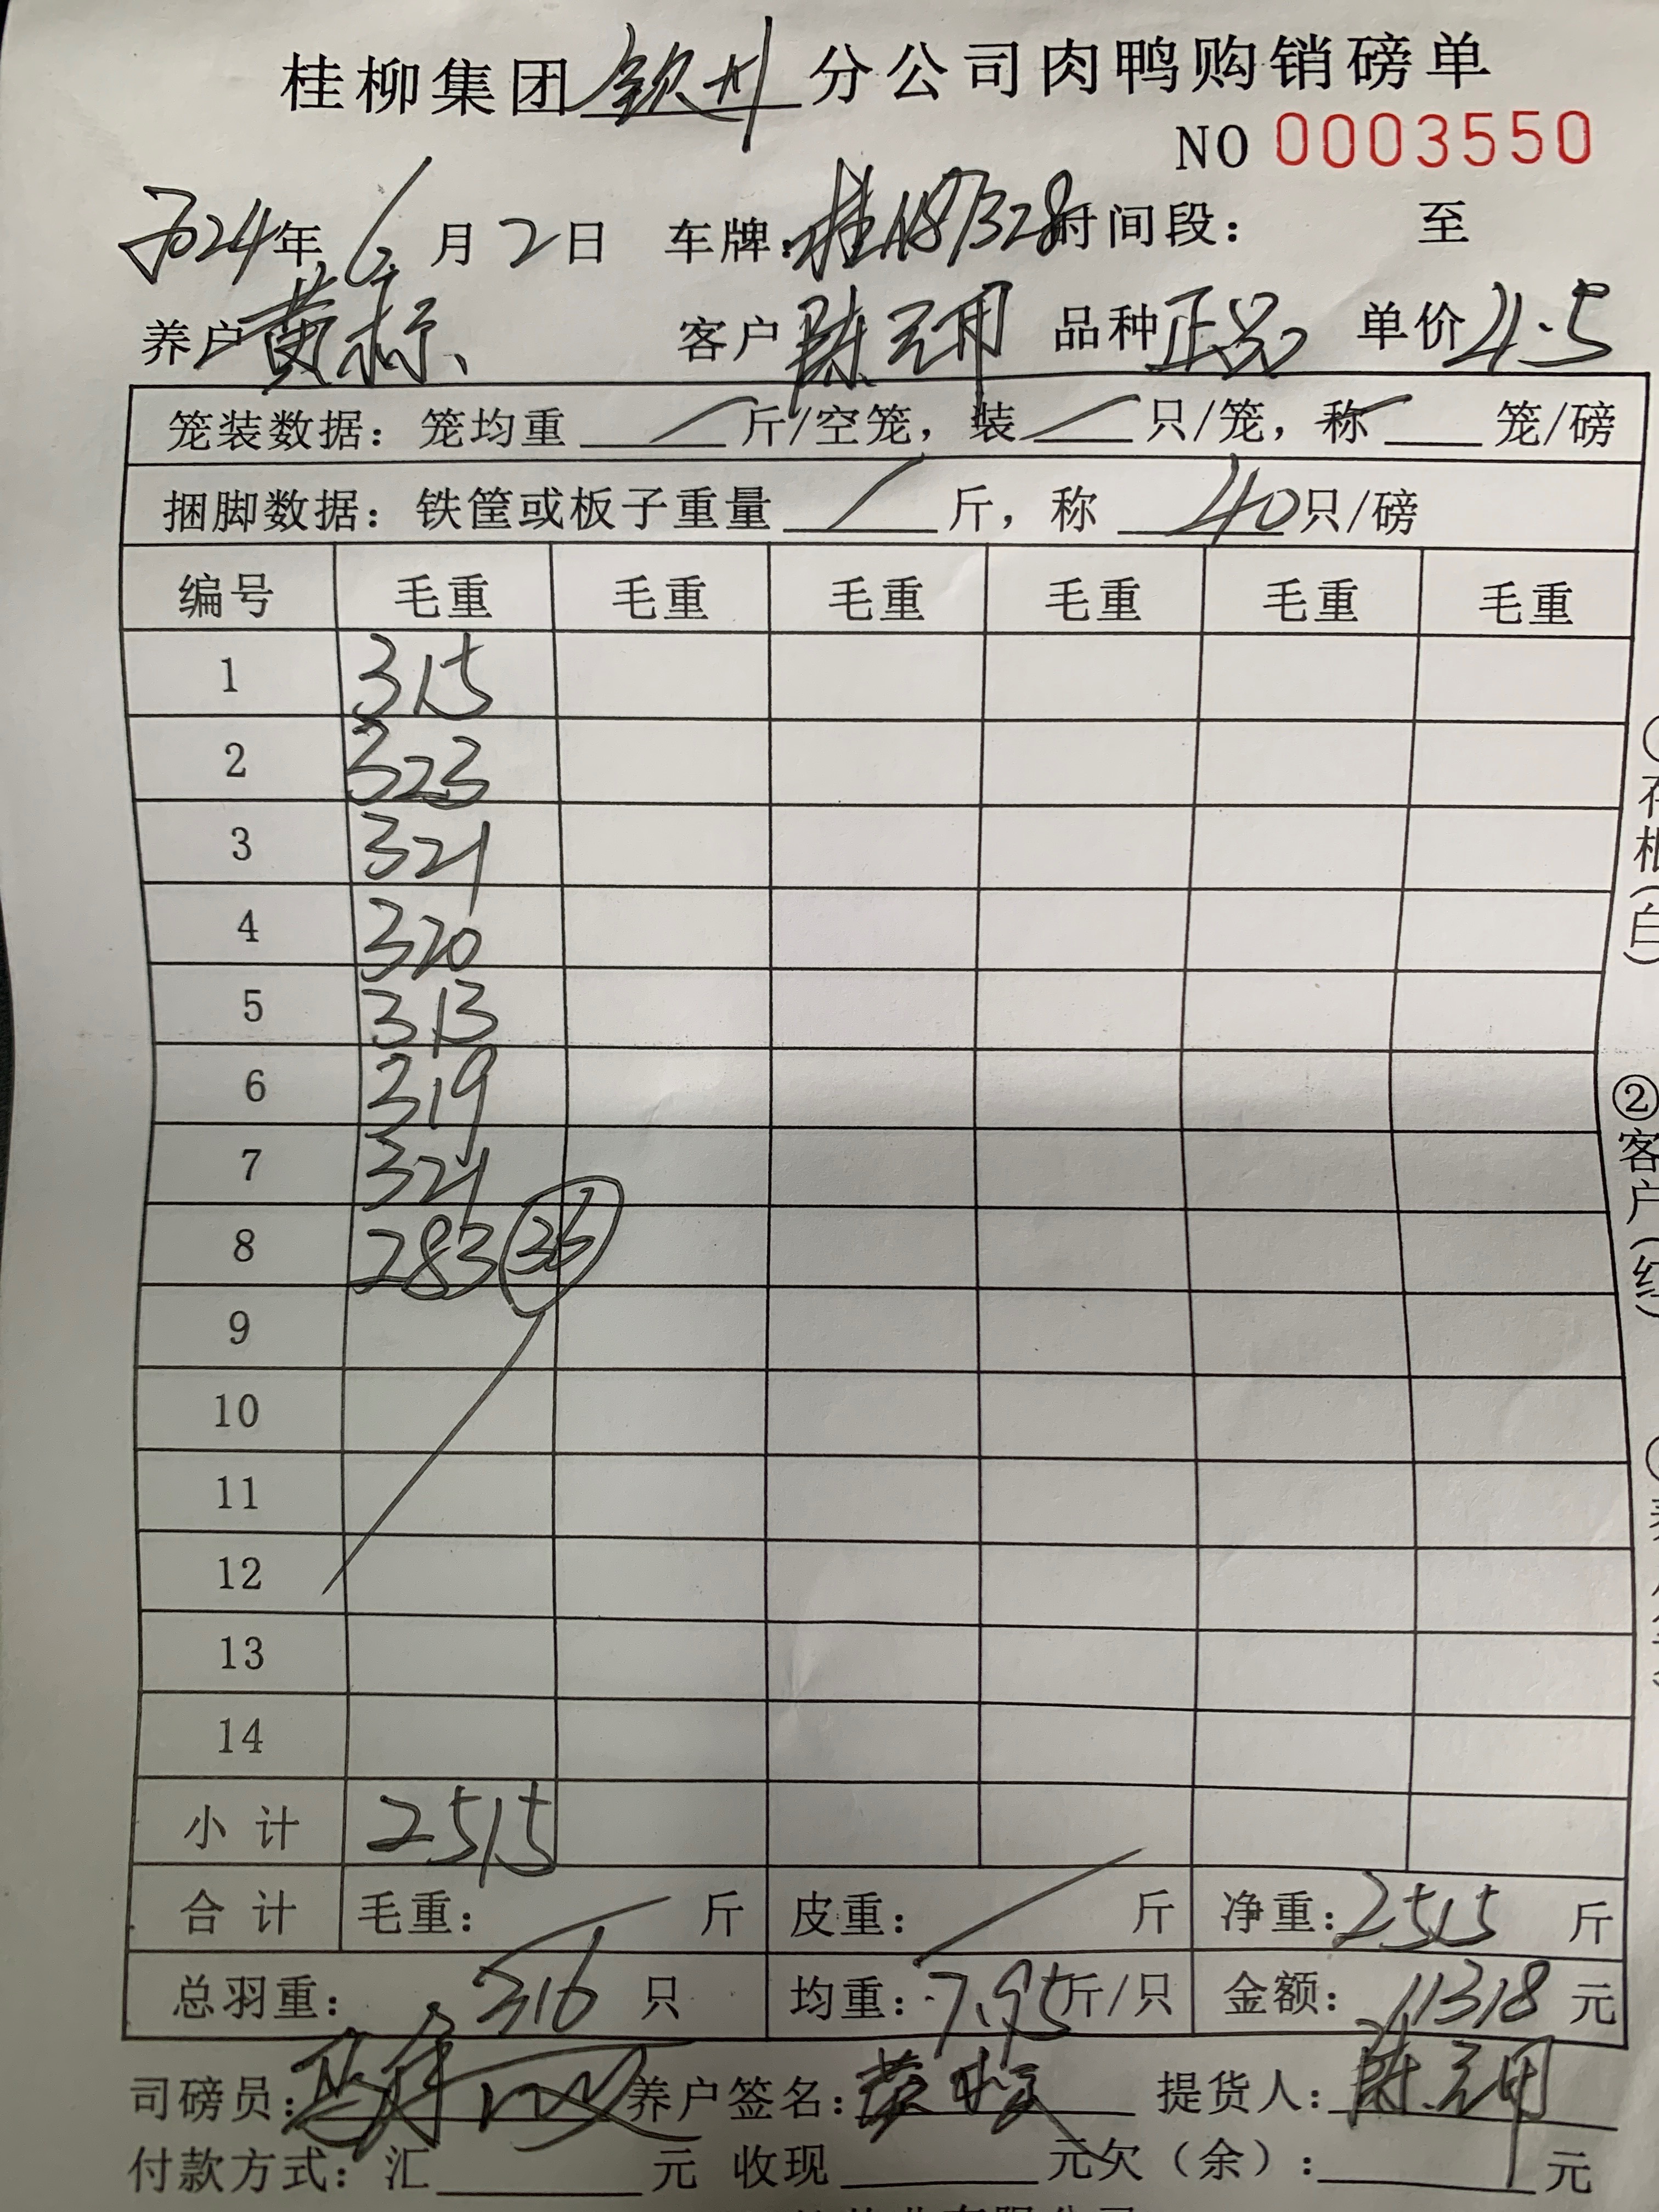 桂柳集团钦州分公司肉鸭购销磅单
NO 0003550
2024年6月2日 车牌:桂A87328时间段: 至
养户黄标 客户陈元用 品种正品 单价4.5
笼装数据:笼均重/斤/空笼,装/只/笼,称/笼/磅
捆脚数据:铁筐或板子重量/斤,称40只/磅
编号 毛重 毛重 毛重 毛重 毛重 毛重
1 315
2 323
3 321
4 320
5 313
6 319
7 321
8 283 36
9
10
11
12
13
14
小计 2515
合计 毛重:/斤 皮重:/斤 净重:2515斤
总羽重:316只 均重:7.95斤/只 金额:11318元
司磅员: 养户签名:黄标 提货人:陈元用
付款方式:汇 元 收现 元欠(余): 元
存根(白)
②客户(红)